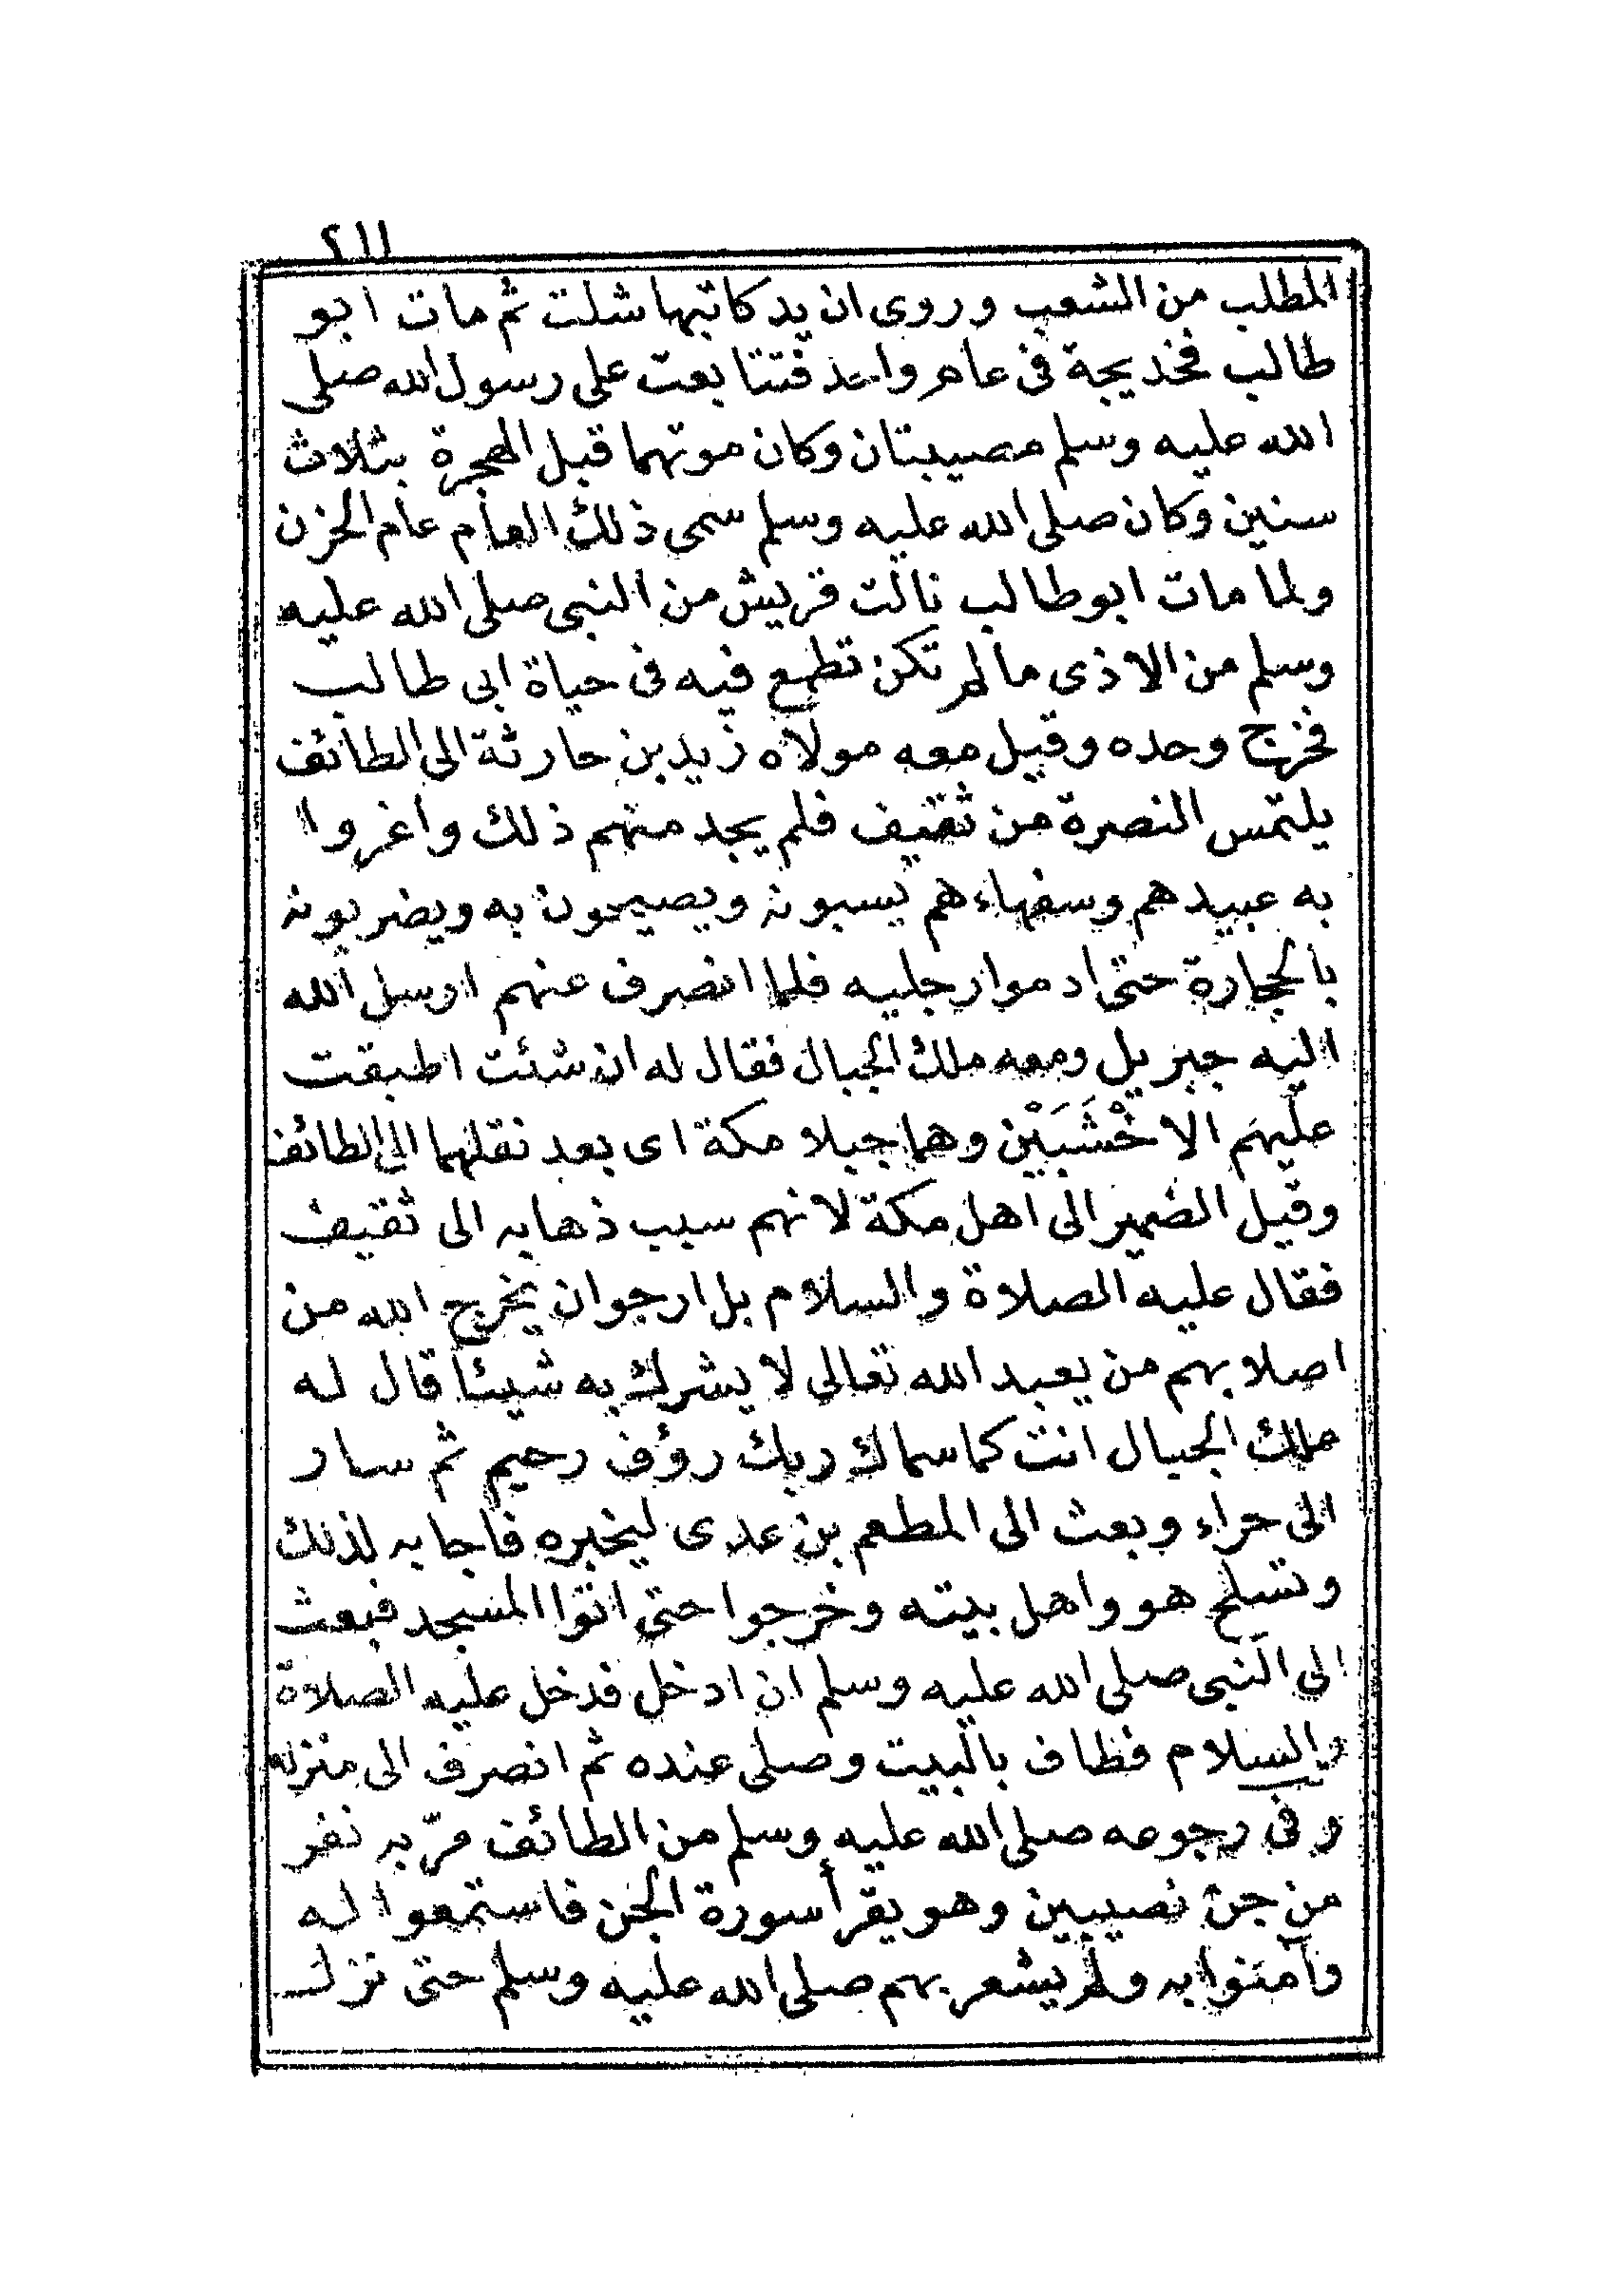 ٢١١
المطلب من الشعب وروى ان يد كاتبها شلت ثم مات ابو
طالب فخديجة فى عام واحد فتتابعت على رسول الله صلى
الله عليه وسلم مصيبتان وكان موتهما قبل الهجرة بثلاث
سنين وكان صلى الله عليه وسلم سمى ذلك العام عام الحزن
ولما مات ابو طالب نالت قريش من النبى صلى الله عليه
وسلم من الاذى مالم تكن تطمع فيه فى حياة ابى طالب
فخرج وحده وقيل معه مولاه زيد بن حارثة الى الطائف
يلتمس النصرة من ثقيف فلم يجد منهم ذلك واغروا
به عبيدهم وسفهاءهم يسبونه ويصيحون به ويضربونه
بالحجارة حتى ادموا رجليه فلما انصرف عنهم ارسل الله
اليه جبريل ومعه ملك الجبال فقال له ان شئت اطبقت
عليهم الاخْشَبَيْن وهما جبلا مكة اى بعد نقلهما الى الطائف
وقيل الضمير الى اهل مكة لانهم سبب ذهابه الى ثقيف
فقال عليه الصلاة والسلام بل ارجوان يخرج الله من
اصلابهم من يعبد الله تعالى لا يشرك به شيئا قال له
ملك الجبال انت كما سماك ربك رؤف رحيم ثم سار
الى حراء وبعث الى المطعم بن عدى ليخبره فاجابه لذلك
وتسلح هو واهل بيته وخرجوا حتى اتوا المسجد فبعث
الى النبى صلى الله عليه وسلم ان ادخل فدخل عليه الصلاة
والسلام فطاف بالبيت وصلى عنده ثم انصرف الى منزله
وفى رجوعه صلى الله عليه وسلم من الطائف مرّ به نفر
من جن نصيبين وهو يقرأ سورة الجن فاستمعوا له
وآمنوا به ولم يشعر بهم صلى الله عليه وسلم حتى نزل